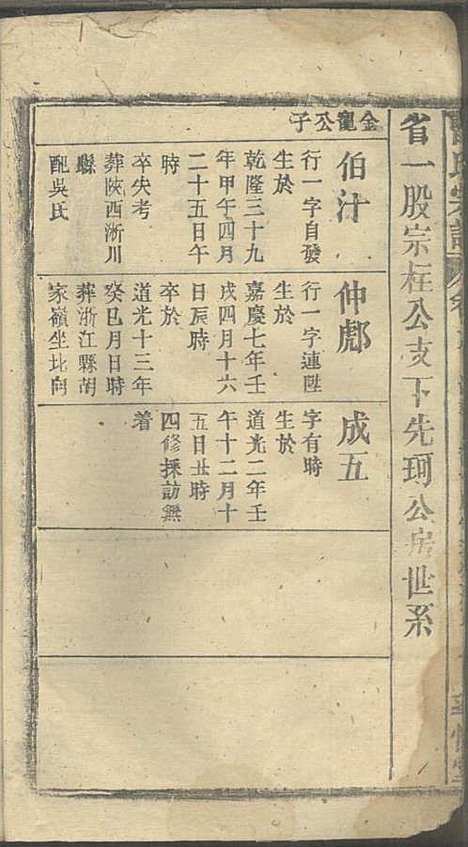 省一股宗柱公支下先珂公房世系
金龍公子
伯汁
行一字自發
生於
乾隆三十九
年甲午四月
二十五日午
時
卒失考
葬陝西淅川
縣
配吳氏
仲彪
行一字連陞
生於
嘉慶七年壬
戌四月十六
日辰時
卒於
道光十三年
癸巳月日時
葬浙江縣胡
家嶺坐北向
成五
字有時
生於
道光二年壬
午十二月十
五日丑時
四修採訪無
着
氏宗譜